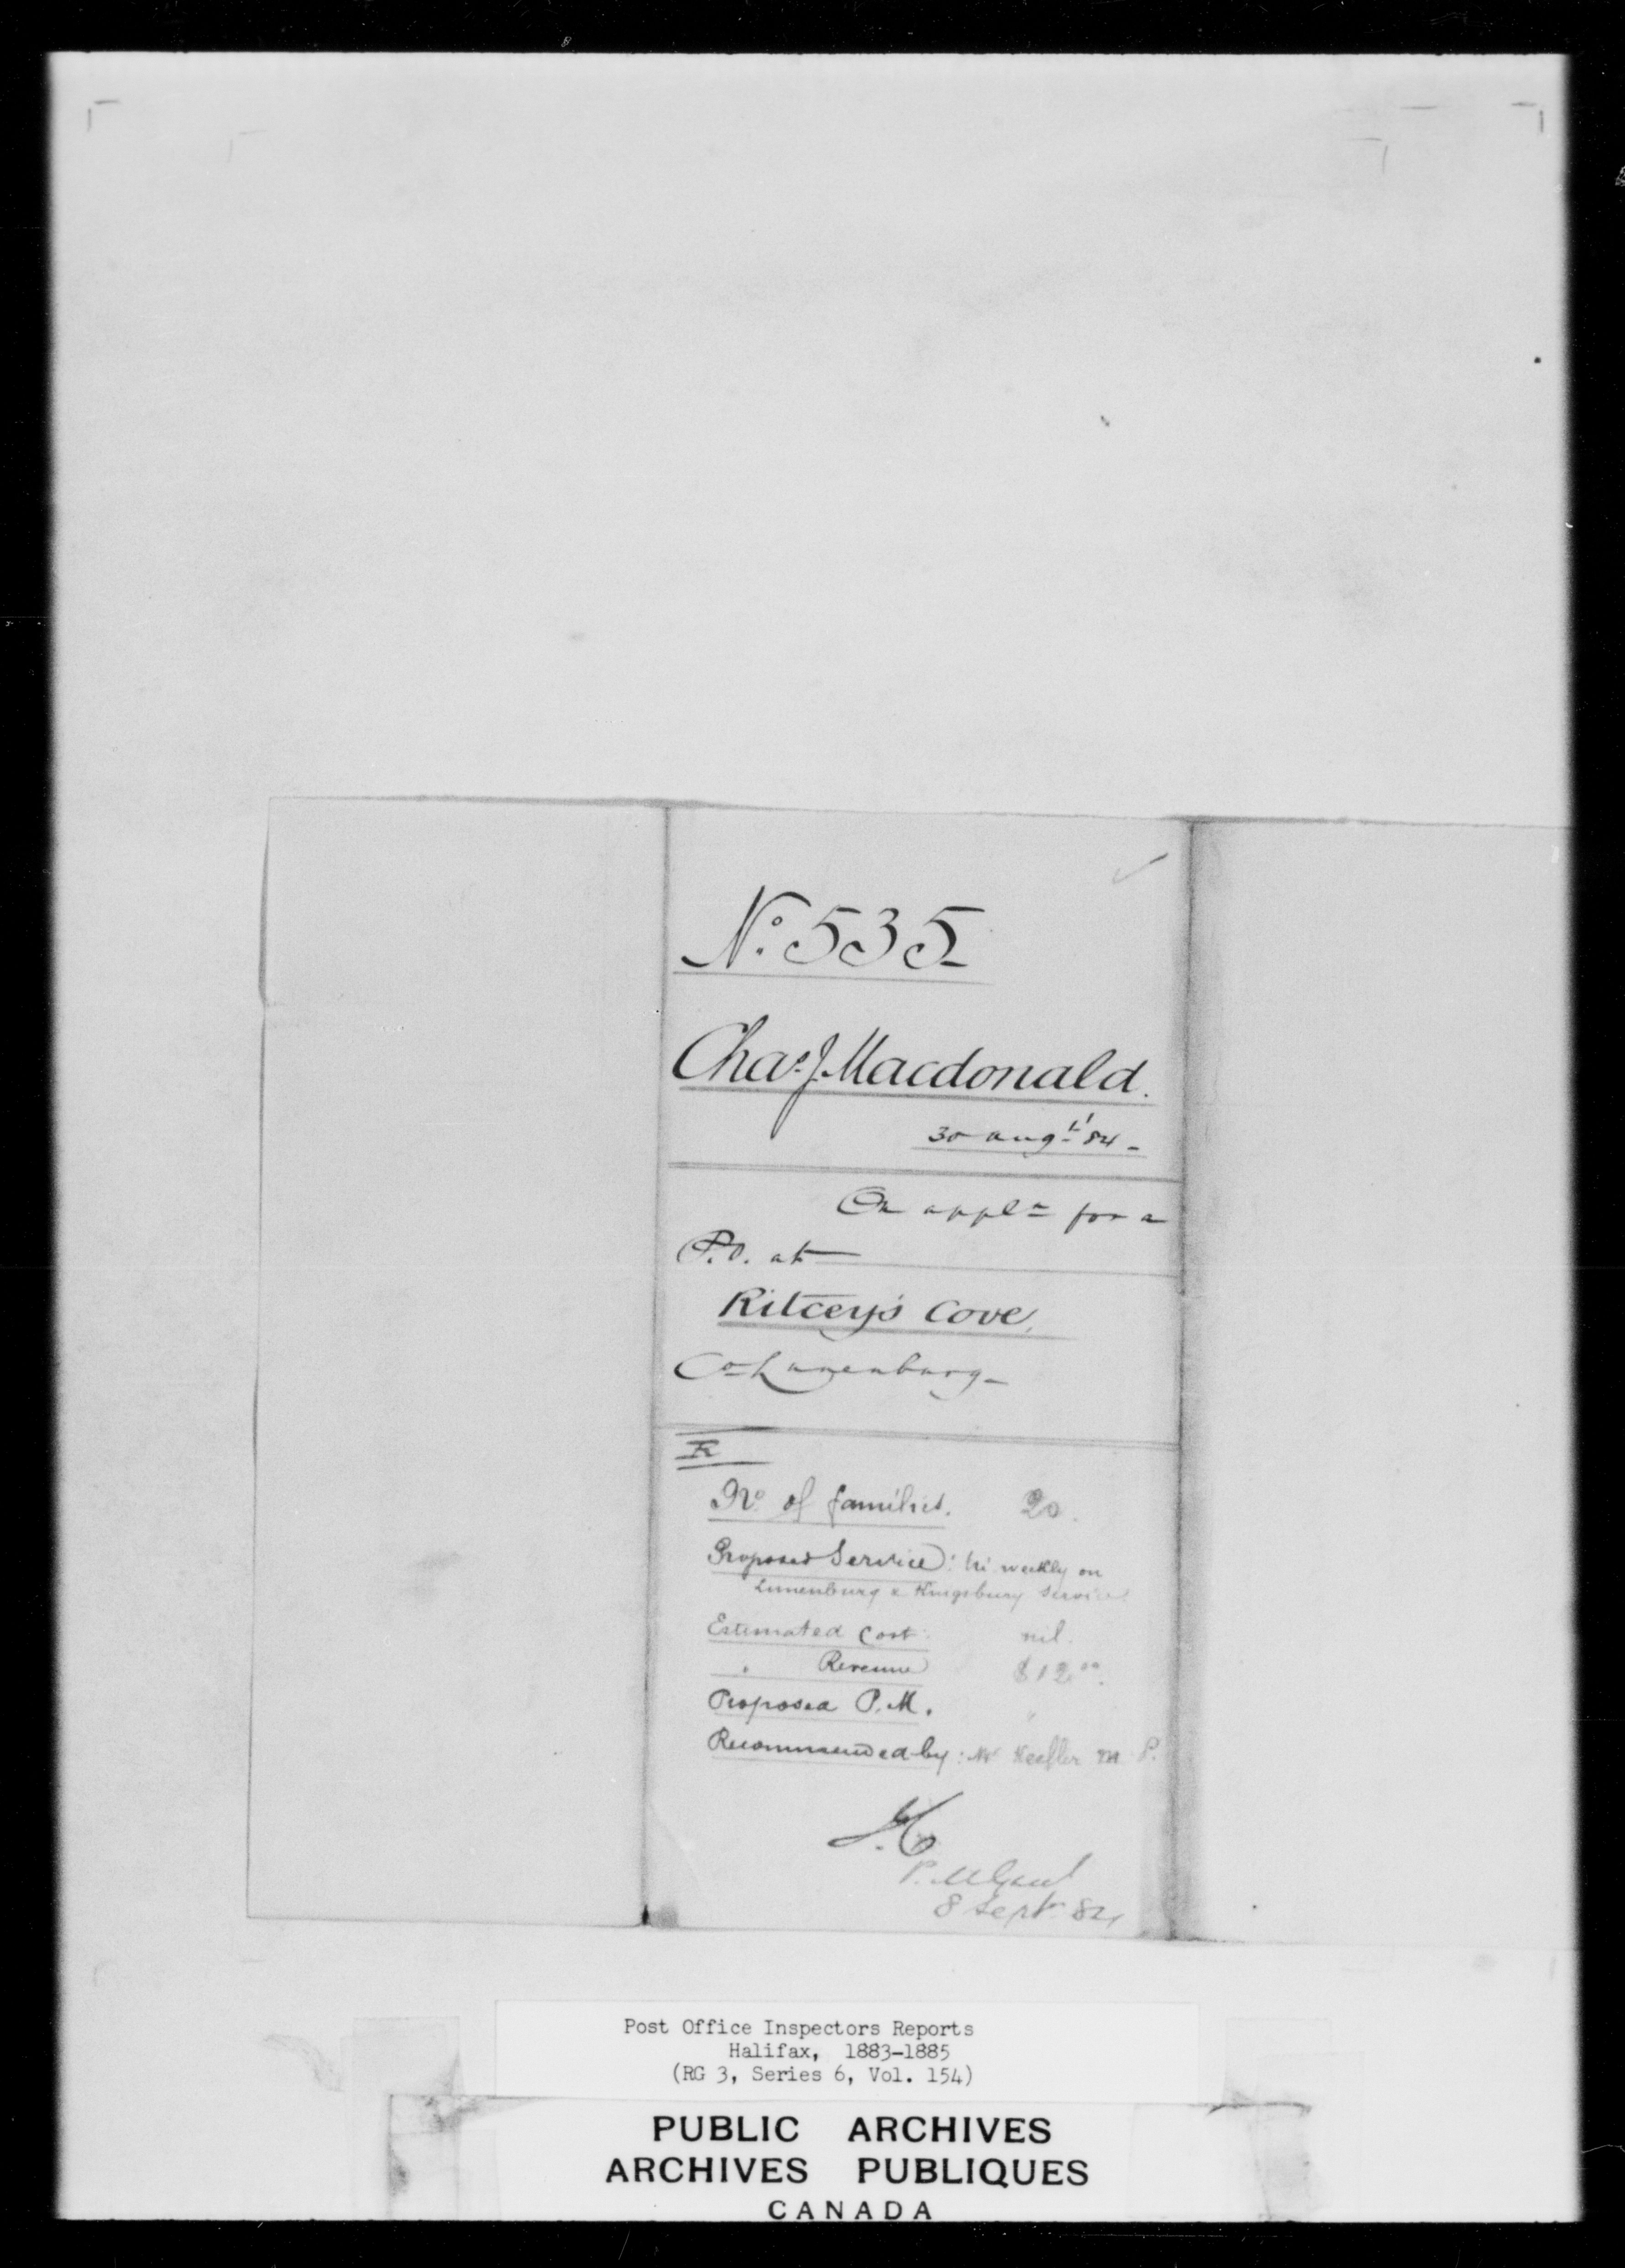 No. 535
Chas. J. Macdonald.
30 Augt '84 -
On appln for a
P.O. at
Ritcey's Cove,
Co Lunenburg -
No. of families. 20.
Proposed Service: tri-weekly on
Lunenburg & Kingsbury Service.
Estimated Cost: nil.
" Revenue $12.00.
Proposed P.M. "
Recommended by: Mr M. P.
8 Sept. 84
Post Office Inspectors Reports
Halifax, 1883-1885
(RG 3, Series 6, Vol. 154)
PUBLIC ARCHIVES
ARCHIVES PUBLIQUES
CANADA